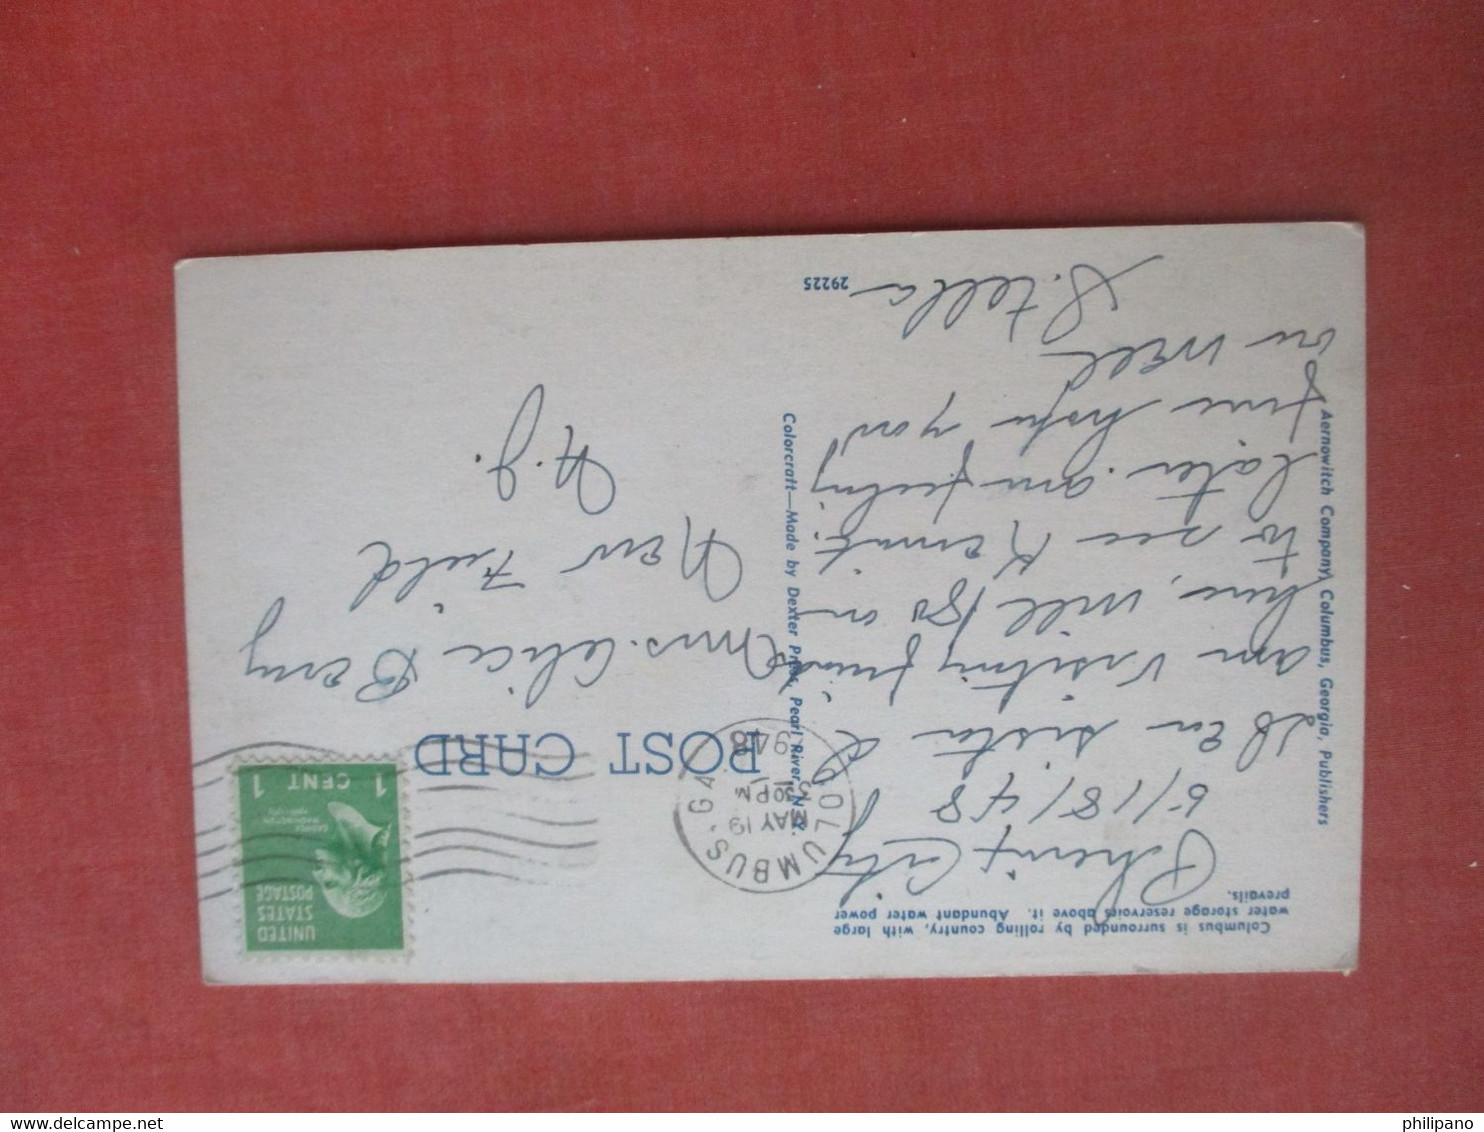 Columbus is surrounded by rolling country, with large
water storage reservoirs above it. Abundant water power
prevails.
Phenix City
5/18/48
Dear sister
am visiting friends
here, will go on
to see Kermit
later. am feeling
fine hope you
are well
Stella
29225
Aernowitch Company, Columbus, Georgia, Publishers
Colorcraft—Made by Dexter Press, Pearl River, N.Y.
POST CARD
COLUMBUS, GA.
MAY 19
30 PM
1948
UNITED
STATES
POSTAGE
1 CENT 1
Mrs. Alice Berry
New Field
N.J.
philipano